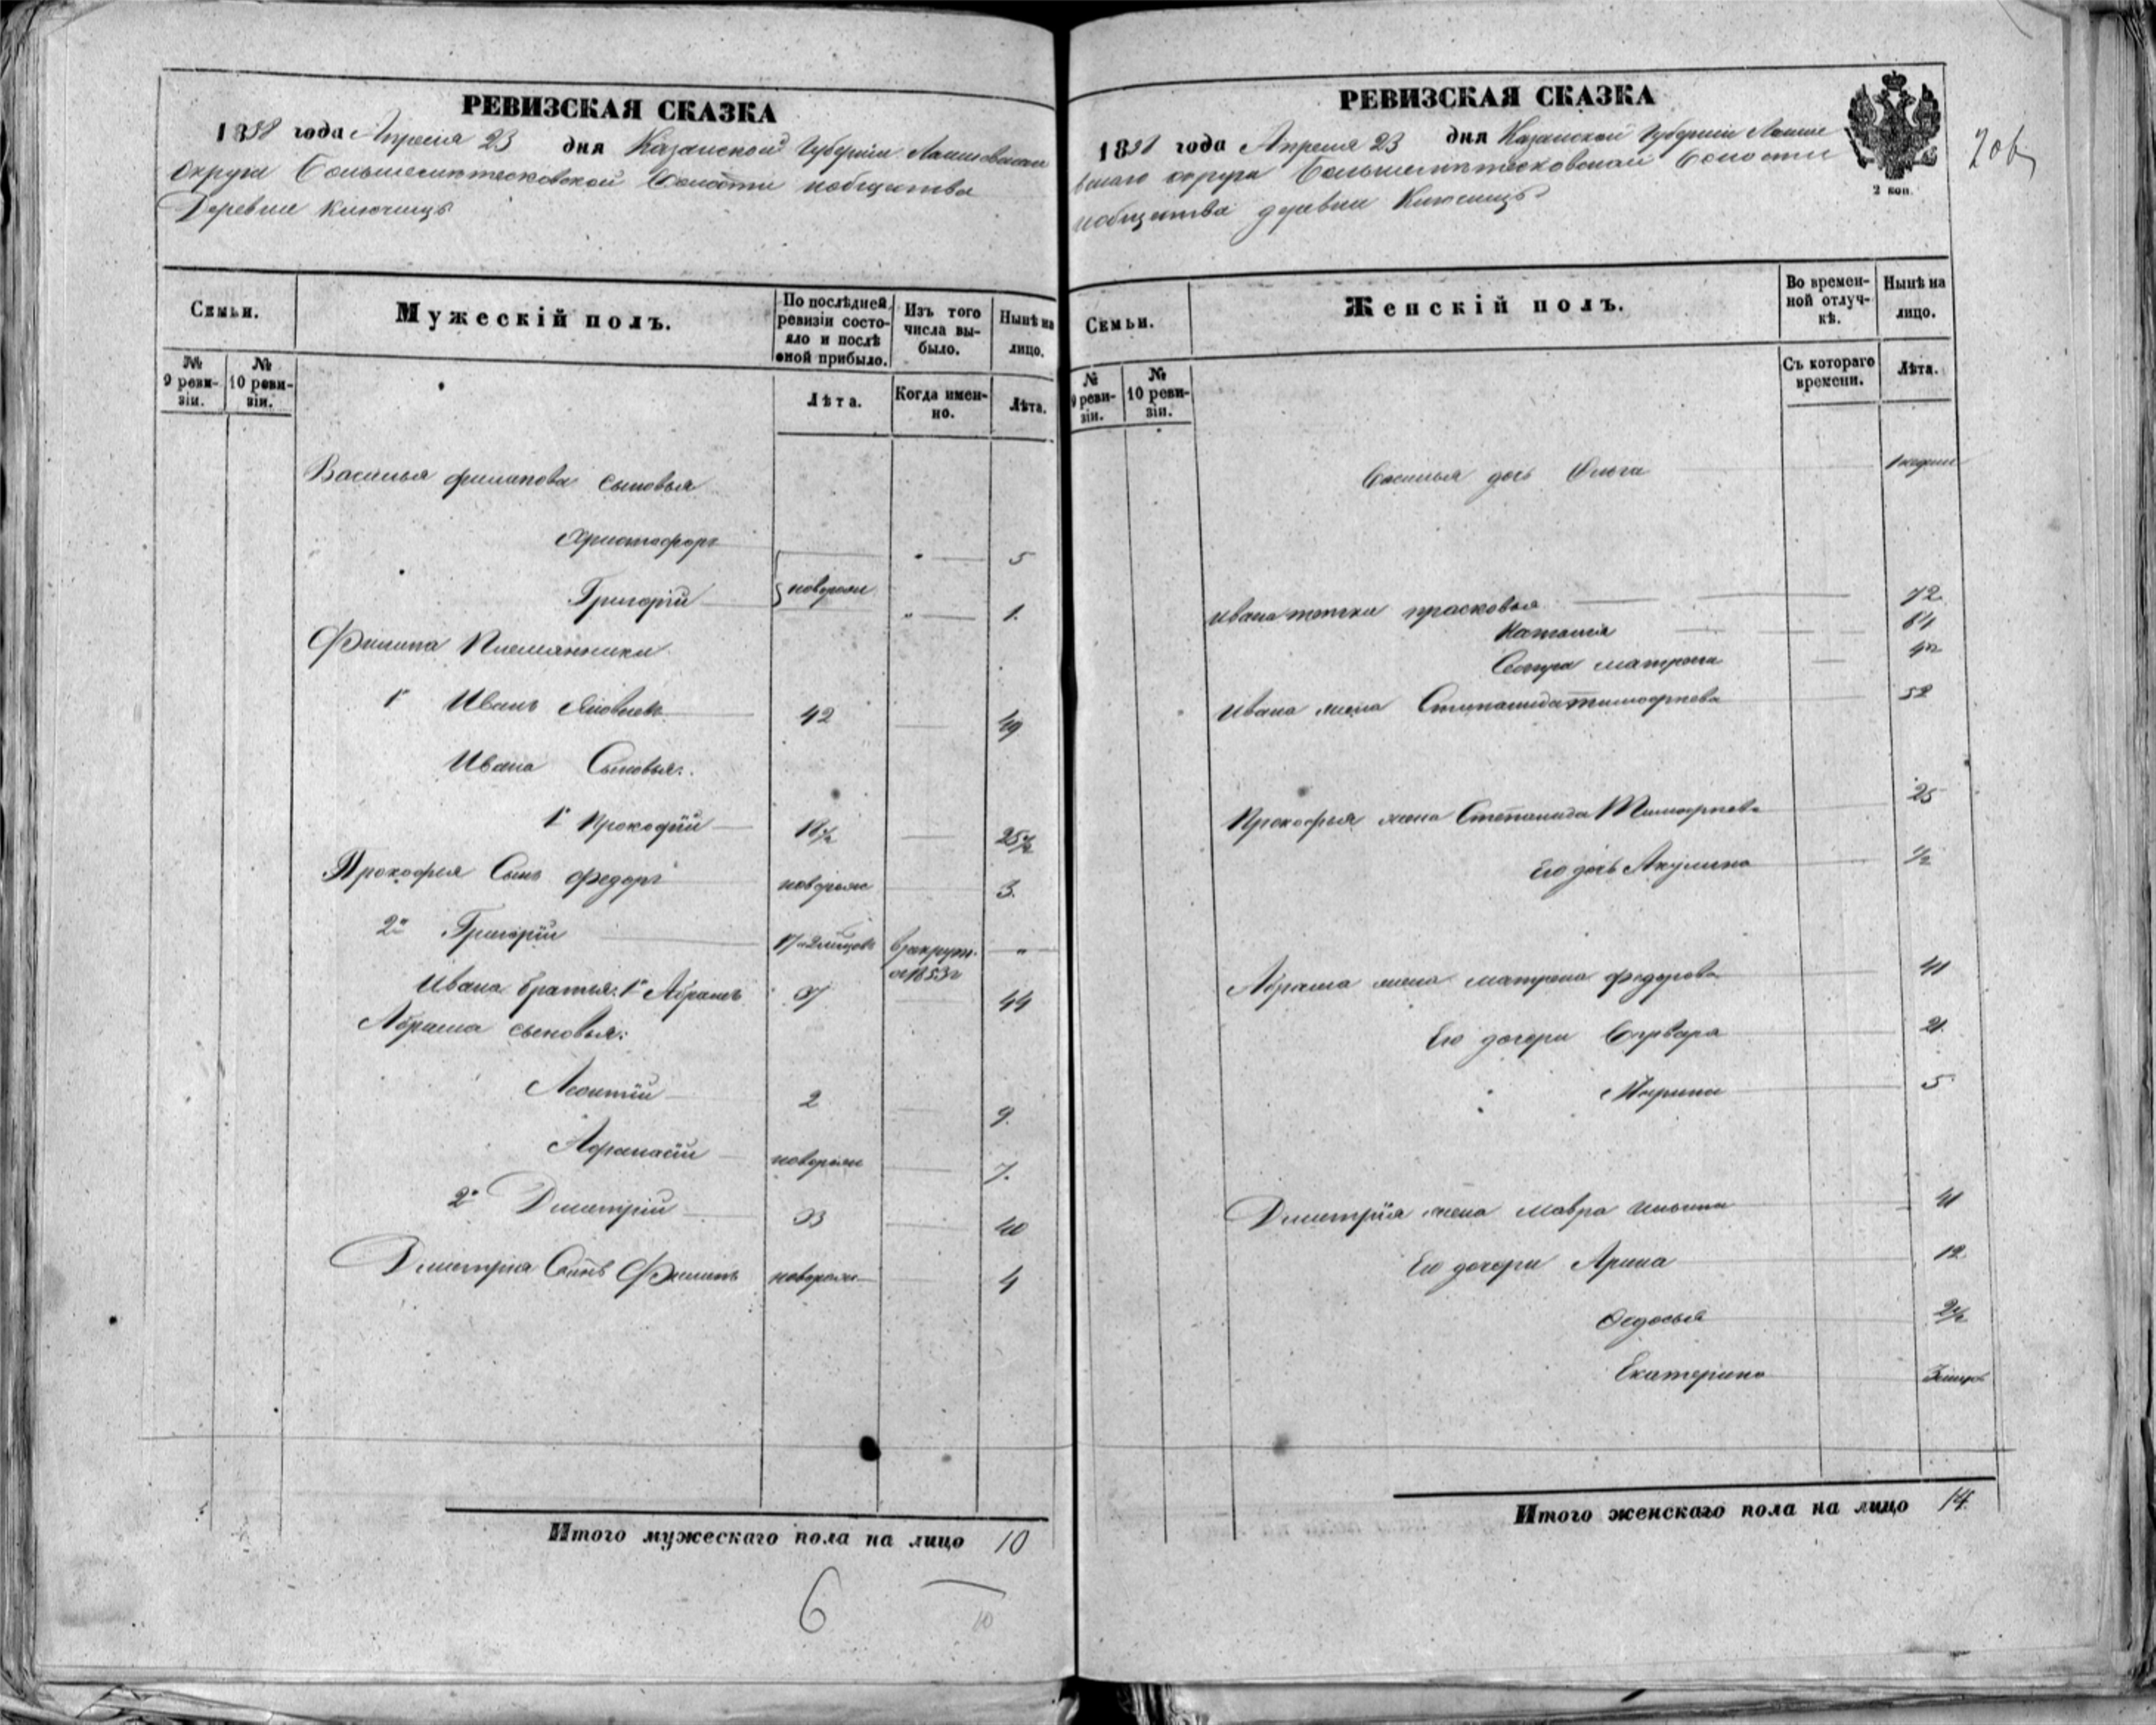 РЕВИЗСКАЯ СКАЗКА
1858 года Апреля 23 дня Казанской Губернии Лаишевскаго
округа Волости и общества
Деревни Ключищъ
Семьи.
Мужескій полъ.
По послѣдней ревизіи состояло и послѣ оной прибыло.
Изъ того числа выбыло.
Нынѣ на лицо.
№ 9 ревизіи.
№ 10 ревизіи.
Лѣта.
Когда именно.
Лѣта.
Василья филипова сыновья
Христофоръ 5
Григорій новорожд 1.
Филипа Племянники
1й Иванъ Яковлевъ 42 49
Ивана Сыновья:
1й Прокофій 18½ 25½
Прокофья Сынъ федоръ новорожд 3.
2й Григорій 17 и 2 месецовъ в рекрут. 1853г "
Ивана братья: 1й Абрамъ 37 44
Абрама сыновья:
Леонтій 2 9.
Афонасій новорожд 7.
2й Дмитрій 33 40
Дмитрія Сынъ Филипъ новорожд 4
Итого мужескаго пола на лицо 10
6
10
РЕВИЗСКАЯ СКАЗКА
1858 года Апреля 23 дня Казанской Губернии Лаише
вскаго округа Волости
и общества деревни Ключищъ
2 коп.
7 об
Семьи.
Женскій полъ.
Во временной отлучкѣ.
Нынѣ на лицо.
№ 9 ревизіи.
№ 10 ревизіи.
Съ котораго времени.
Лѣта.
Василья дочь Ольга 1 недели
Ивана тетки прасковья 72
Наталия 64
Сестра матрена
Ивана жена Степанида тимофеева 52
Прокофья жена Степанида Тимофеева 25
Его дочь Акулина ½
Абрама жена матрена федорова 41
Его дочери Варвара 21.
Марина 5
Дмитрія жена Мавра Ильина 41
Его дочери Арина 12
Федосья 2½
Екатерина
Итого женскаго пола на лицо 14